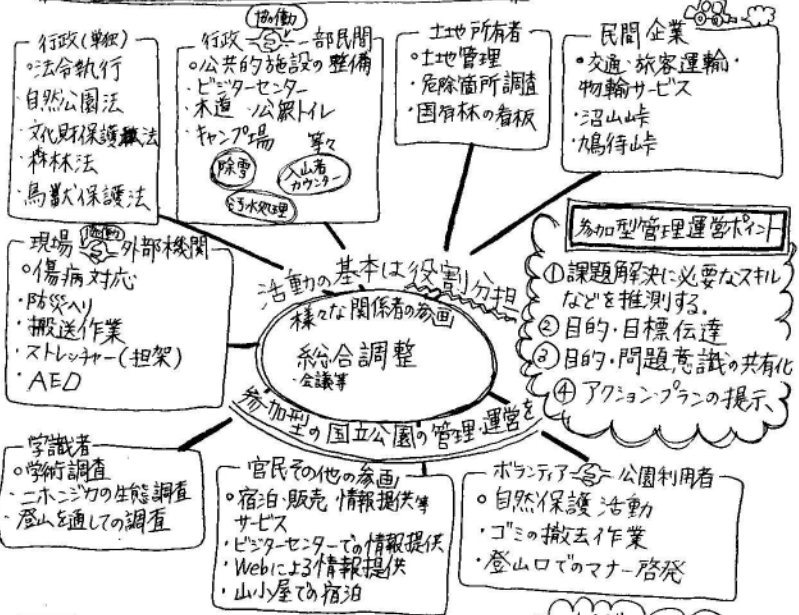 行政(単独)
○法令執行
・自然公園法
・文化財保護法
・森林法
・鳥獣保護法
協働
行政 一部民間
○公共的施設の整備
・ビジターセンター
・木道・公衆トイレ
・キャンプ場 等々
除雪
入山者
カウンター
汚水処理
土地所有者
○土地管理
・危険箇所調査
・国有林の看板
民間企業
○交通・旅客運輸・
物輸サービス
・沼山峠
・鳩待峠
現場 協働 外部機関
○傷病対応
・防災ヘリ
・搬送作業
・ストレッチャー(担架)
・AED
活動の基本は役割分担
様々な関係者の参画
総合調整
・会議等
参加型の国立公園の管理・運営を
参加型管理運営ポイント
①課題解決に必要なスキル
などを推測する。
②目的・目標伝達
③目的・問題意識の共有化
④アクションプランの提示、
学識者
○学術調査
・ニホンジカの生態調査
・登山を通しての調査
官民その他の参画
○宿泊・販売・情報提供等
サービス
・ビジターセンターでの情報提供
・Webによる情報提供
・山小屋での宿泊
ボランティア 公園利用者
○自然保護活動
・ゴミの撤去作業
・登山口でのマナー啓発